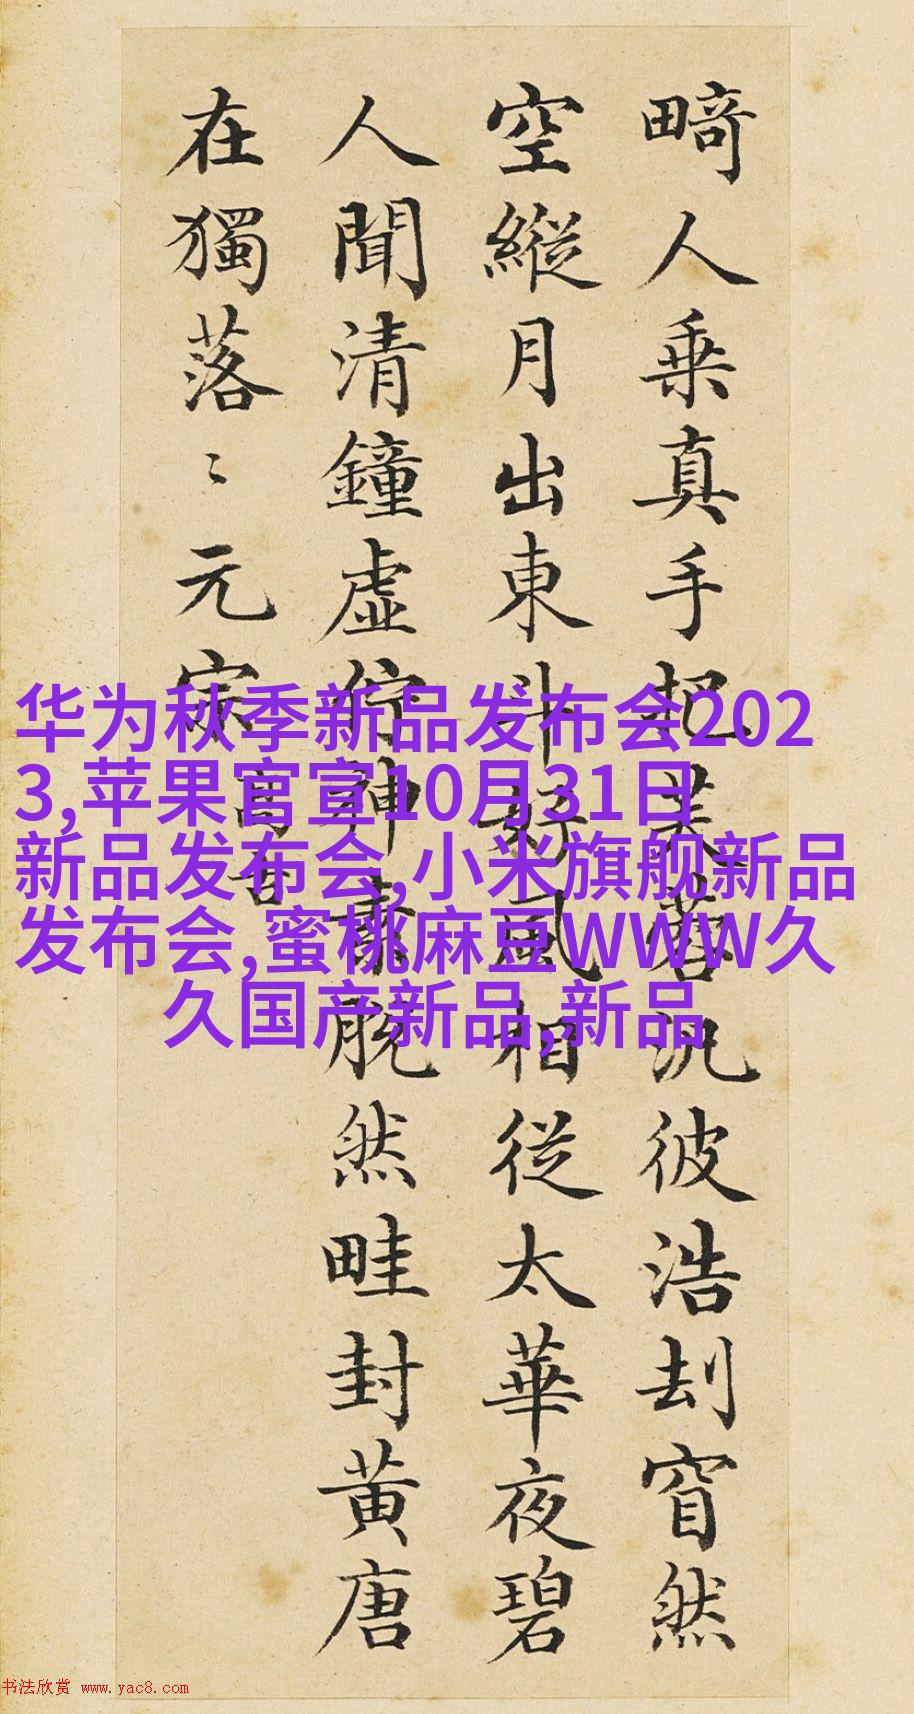 畸人乗真手把芙蓉汎彼浩刦窅然
空縱月出東斗好風相從太華夜碧
人聞清鐘虛佇神素脫然畦封黃唐
在獨落〻元宗
華为秋季新品发布会202
3,苹果官宣10月31日
新品发布会,小米旗舰新品
发布会,蜜桃麻豆WWW久
久国产新品,新品
书法欣赏 www.yac8.com